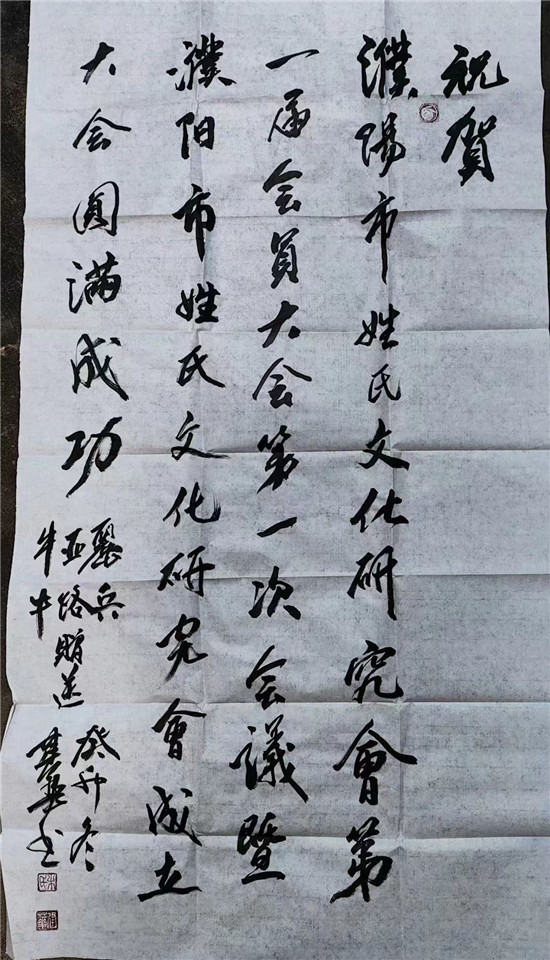 祝賀
濮陽市姓氏文化研究會第
一届会員大会第一次会議暨
濮阳市姓氏文化研究會成立
大会圆满成功
牛亚麗
牛路兵
贈送
癸卯冬
书